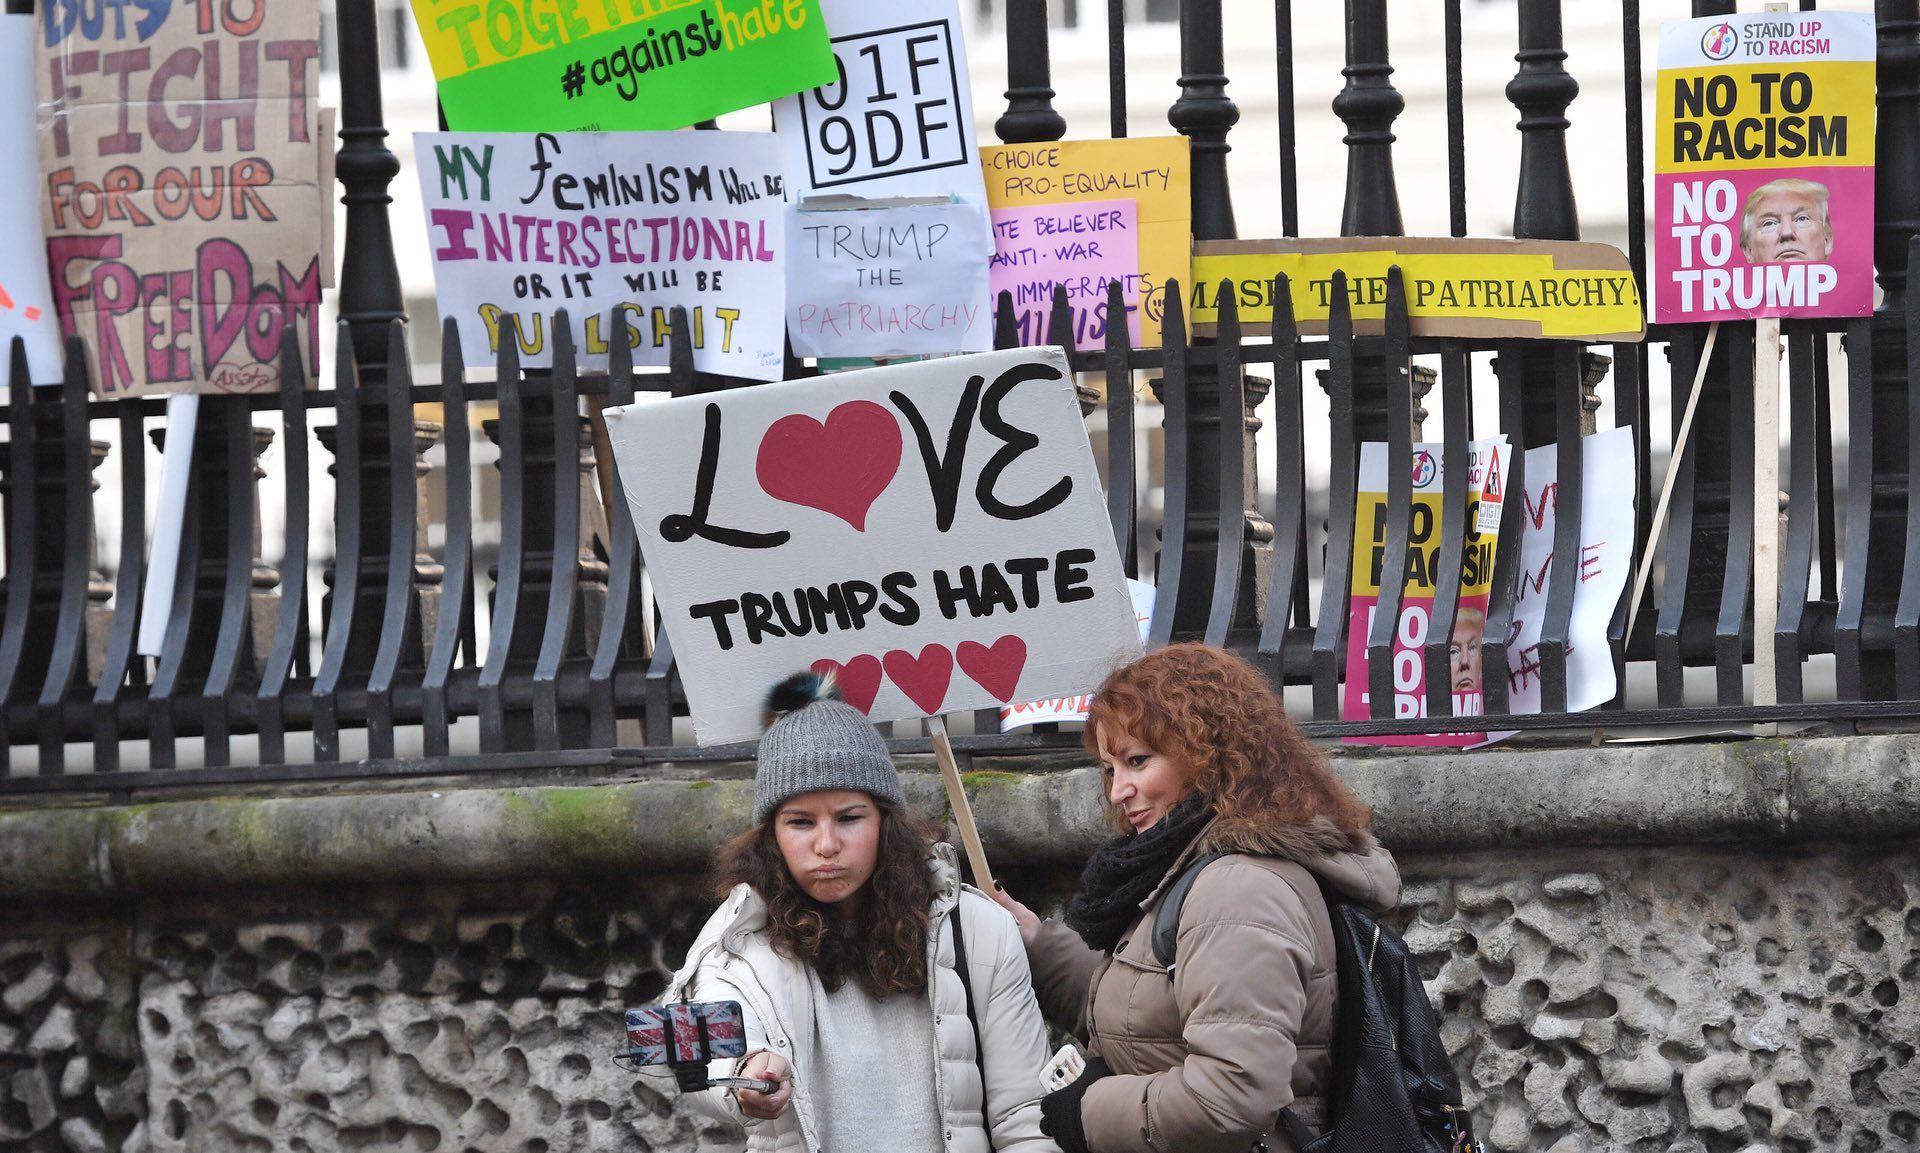 DUTY TO
FIGHT
FOR OUR
FREEDOM
Assata
TOGETHER
#againsthate
MY feminism WILL BE
INTERSECTIONAL
OR IT WILL BE
BULLSHIT.
01F
9DF
TRUMP
THE
PATRIARCHY
-CHOICE
PRO-EQUALITY
BELIEVER
ANTI-WAR
IMMIGRANTS
THE PATRIARCHY!
STAND UP
TO RACISM
NO TO
RACISM
NO
TO
TRUMP
LOVE
TRUMPS HATE
NO
RACISM
TRUMP